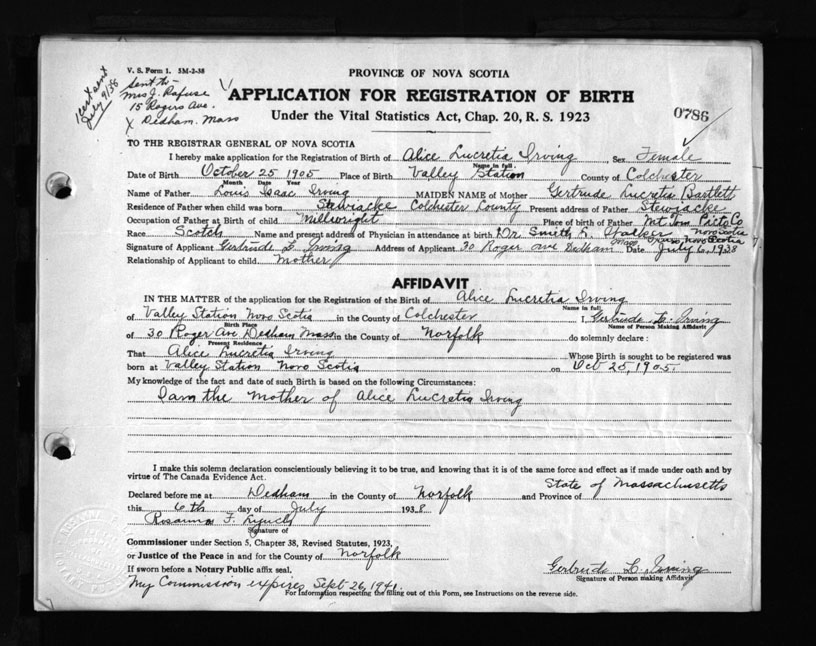 V. S. Form 1. 5M-2-38
1 cert sent
July 9/38
Sent to
Mrs J. Rafuse
15 Rogers Ave.
X Dedham. Mass
PROVINCE OF NOVA SCOTIA
APPLICATION FOR REGISTRATION OF BIRTH
Under the Vital Statistics Act, Chap. 20, R. S. 1923
0786
TO THE REGISTRAR GENERAL OF NOVA SCOTIA
I hereby make application for the Registration of Birth of Alice Lucretia Irving Sex Female
Name in full.
Date of Birth October 25 1905 Place of Birth Valley Station County of Colchester
Month Date Year
Name of Father Louis Isaac Irving MAIDEN NAME of Mother Gertrude Lucretia Bartlett
Residence of Father when child was born Stewiacke Colchester County Present address of Father Stewiacke
Occupation of Father at Birth of child Millwright Place of birth of Father Mt. Tom Pict Co
Nova Scotia
Race Scotch Name and present address of Physician in attendance at birth Dr. Smith L. Walker Truro Nova Scotia
Signature of Applicant Gertrude L. Irving Address of Applicant 30 Roger ave Dedham Mass Date July 6, 1938
Relationship of Applicant to child Mother
AFFIDAVIT
IN THE MATTER of the application for the Registration of the Birth of Alice Lucretia Irving
Name in full.
of Valley Station Nova Scotia in the County of Colchester I, Gertrude L. Irving
Birth Place
Name of Person Making Affidavit
of 30 Roger Ave Dedham Mass in the County of Norfolk do solemnly declare:
Present Residence
That Alice Lucretia Irving Whose Birth is sought to be registered was
born at Valley Station Nova Scotia on Oct 25, 1905.
My knowledge of the fact and date of such Birth is based on the following Circumstances:
I am the Mother of Alice Lucretia Irving
I make this solemn declaration conscientiously believing it to be true, and knowing that it is of the same force and effect as if made under oath and by
virtue of The Canada Evidence Act.
Declared before me at Dedham in the County of Norfolk and Province of State of Massachusetts
this 6th day of July 1938
Rosanna F. Lynch
Signature of
Commissioner under Section 5, Chapter 38, Revised Statutes, 1923,
or Justice of the Peace in and for the County of Norfolk
If sworn before a Notary Public affix seal.
Gertrude L. Irving
Signature of Person making Affidavit
My Commission expires Sept 26, 1941.
For Information respecting the filling out of this Form, see Instructions on the reverse side.